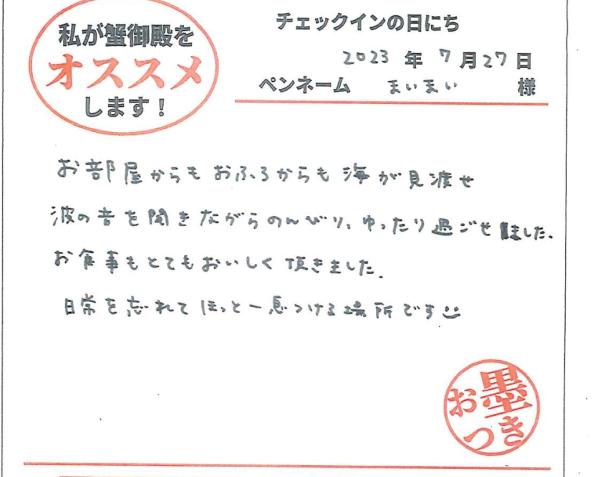 私が蟹御殿を
オススメ
します！
チェックインの日にち
2023年7月27日
ペンネーム まいまい 様
お部屋からもおふろからも海が見渡せ
波の音を聞きながらのんびり、ゆったり過ごせました。
お食事もとてもおいしく頂きました。
日常を忘れてほっと一息つける場所です
お墨
つき